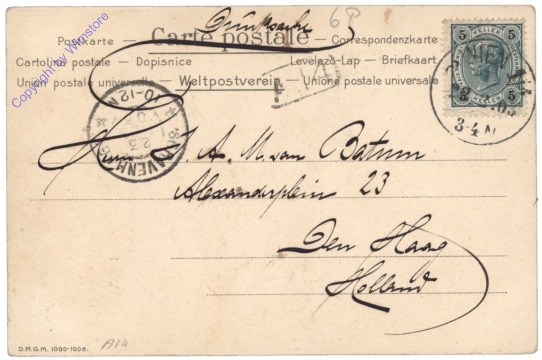 Drucksache
6P
Postkarte — Carte postale — Correspondenzkarte
Cartolina postale — Dopisnice — Levelező-Lap — Briefkaart
Union postale universelle — Weltpostverein — Unione postale universale
Copyright by Witmstore
5 HELLER 5
5 HELLER 5
WIEN
3-4 N
10-12 V
'S GRAVENHAGE
Herrn J. A. M. van Batum
Alexanderplein 23
Den Haag
Holland
D.R.G.M. 1000-1006.
A10